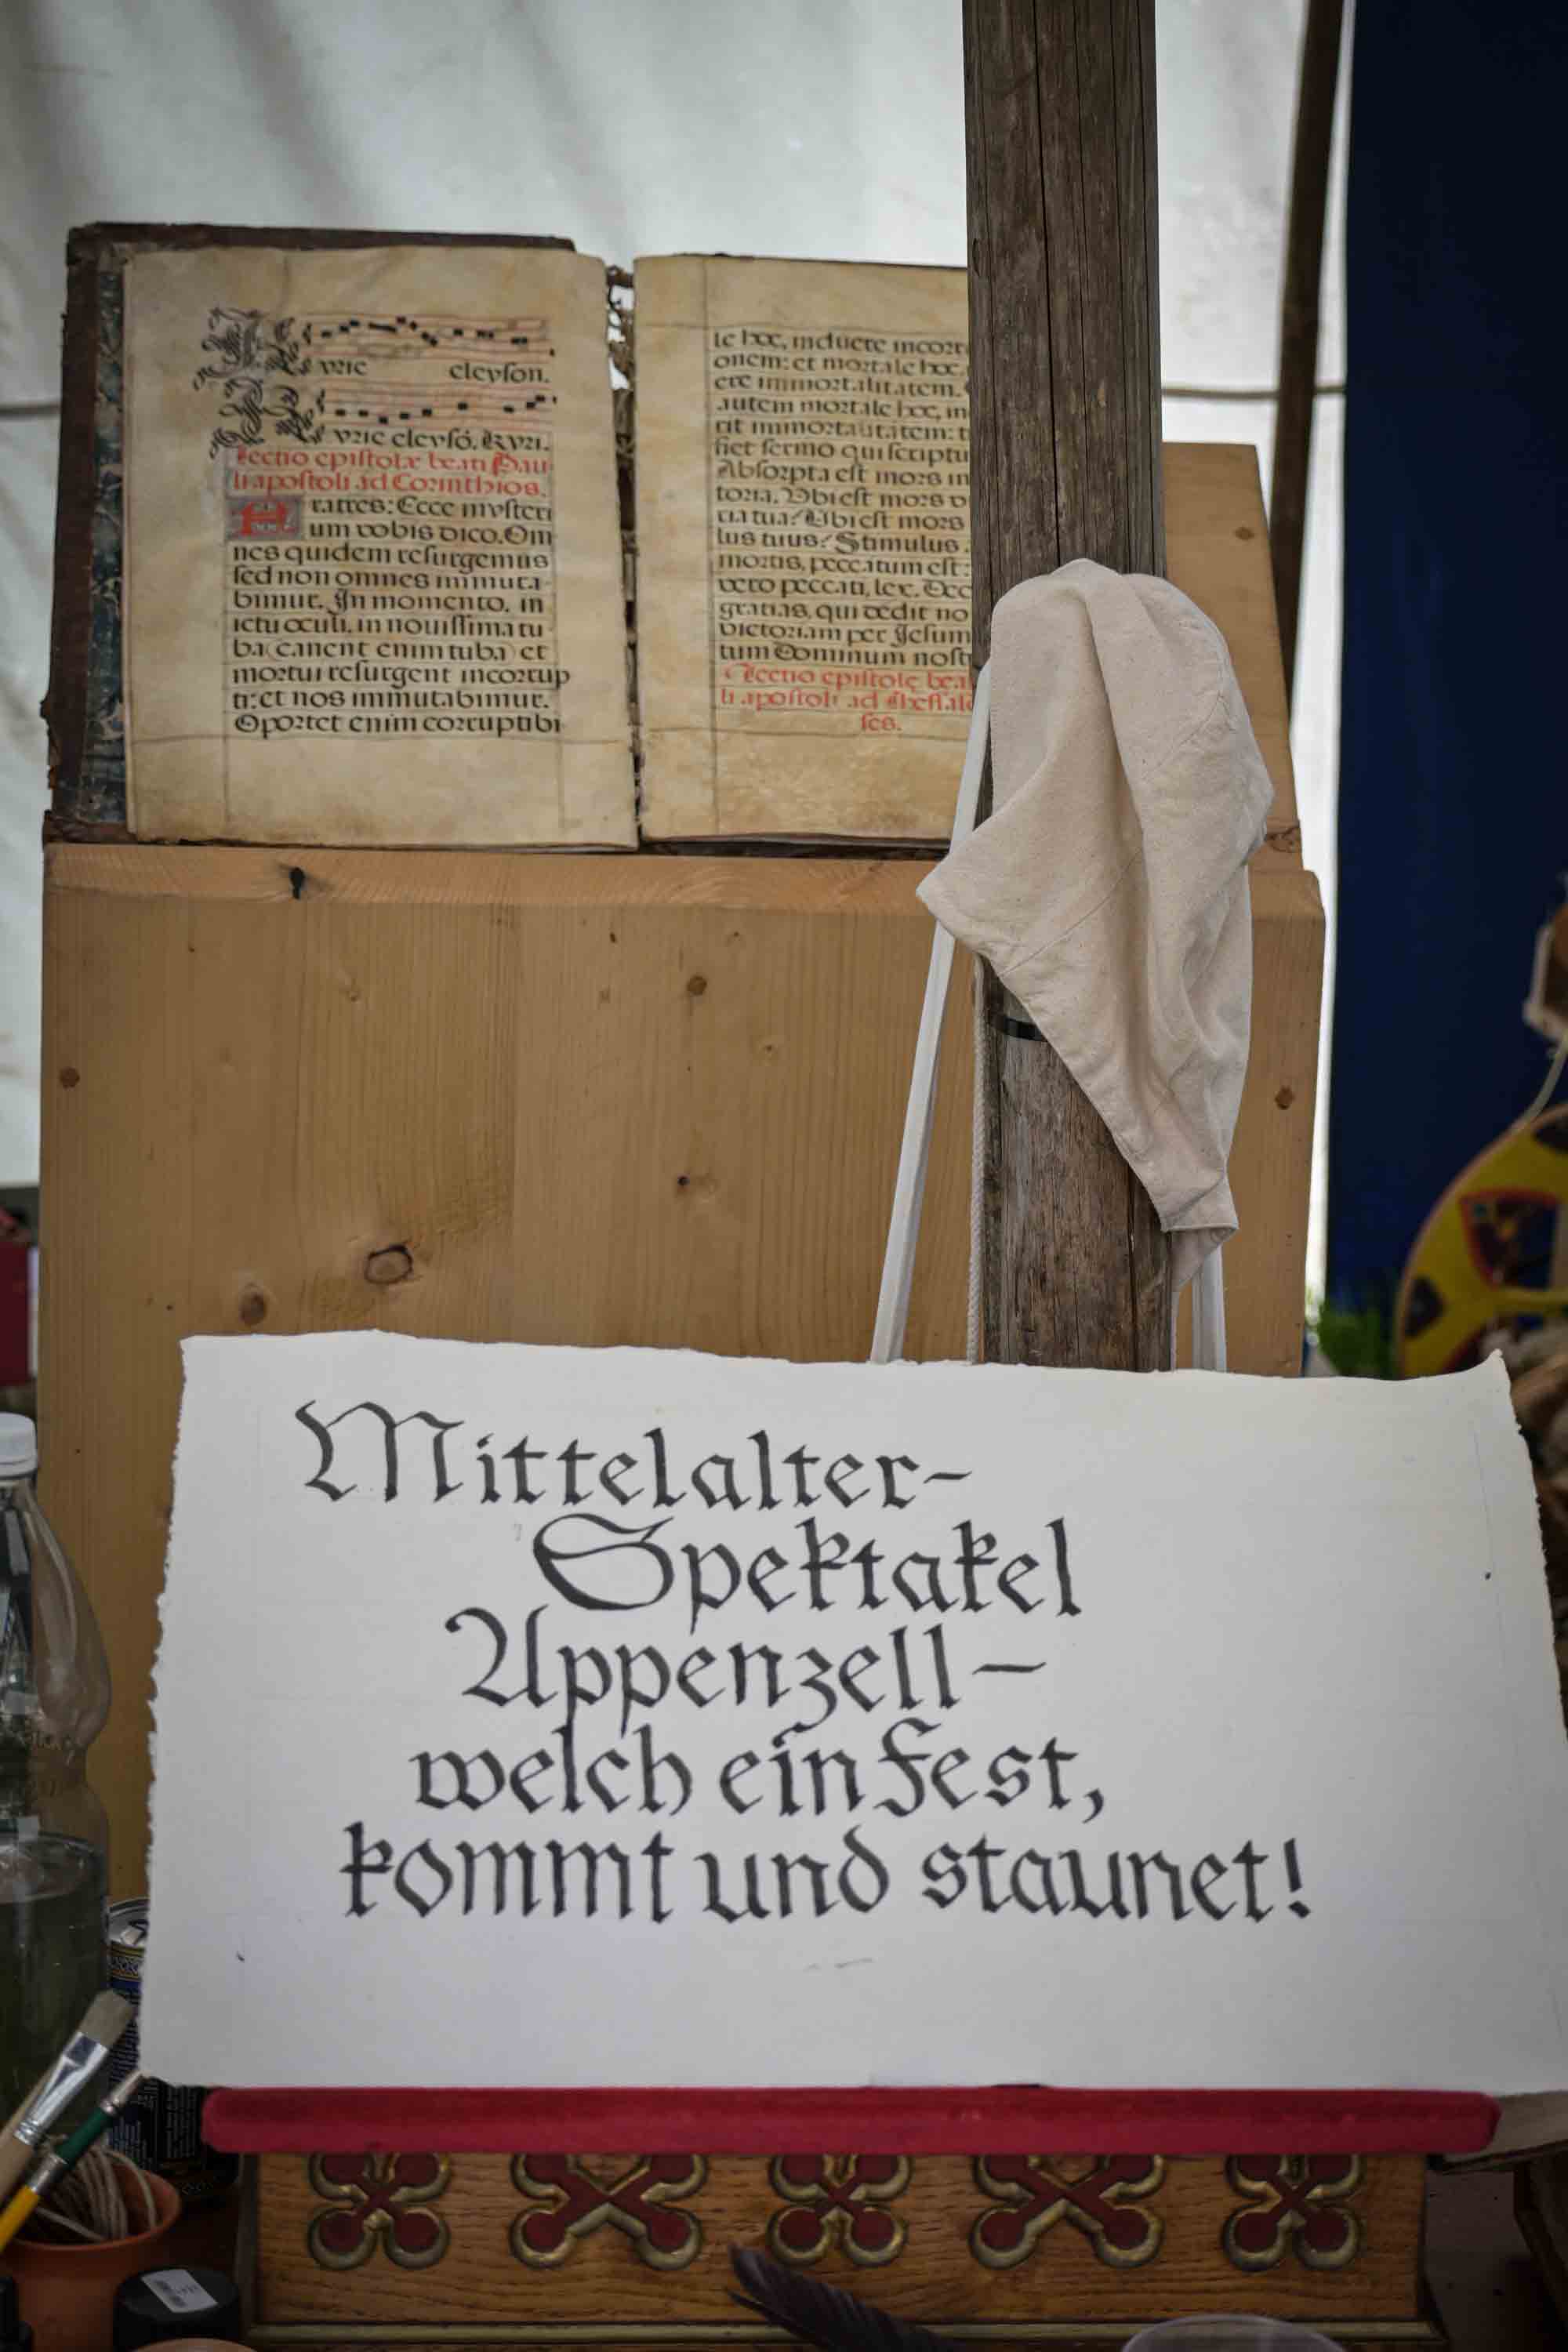 Kyrie eleyson.
Kyrie eleysõ. Kyri.
Lectio epistolæ beati Pau
li apostoli ad Corinthios.
Fratres: Ecce mysteri
um vobis dico. Om
nes quidem resurgemus
sed non omnes immuta
bimur. In momento, in
ictu oculi, in nouissima tu
ba (canent enim tuba) et
mortui resurgent incorrup
ti: et nos immutabimur.
Oportet enim corruptibi
le hoc, induere incorr
onem: et mortale hoc,
ere immortalitatem.
autem mortale hoc, in
rit immortalitatem: t
fiet sermo qui scriptu
Absorpta est mors in
toria. Vbi est mors v
ria tua? Vbi est mors
lus tuus? Stimulus
mortis, peccatum est:
vero peccati, lex. Deo
gratias, qui dedit no
victoriam per Jesum
tum Dominum nost
Lectio epistolę bea
li apostoli ad Thessalo
ses.
Mittelalter-
Spektakel
Appenzell-
welch ein Fest,
kommt und staunet!